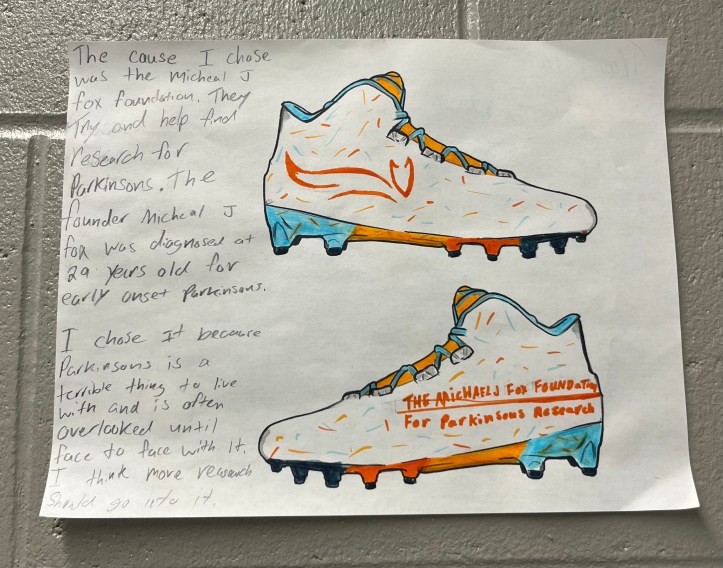 The cause I chose
was the Micheal J
fox foundation. They
Try and help find
research for
Parkinsons. The
founder Micheal J
fox was diagnosed at
29 years old for
early onset Parkinsons.
I chose It because
Parkinsons is a
terrible thing to live
with and is often
overlooked until
face to face with It.
I think more research
Should go into it.
THE MICHAEL J FOX FOUNDATION
For Parkinsons Research